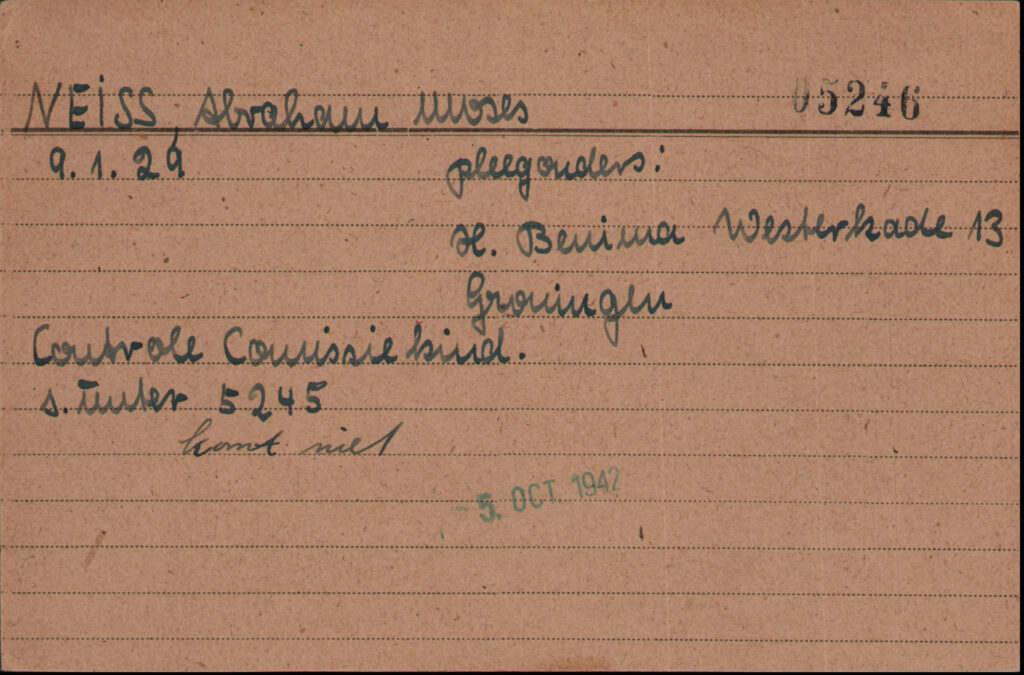 NEISS, Abraham Moses 05246
9.1.29 pleegouders:
H. Benima Westerkade 13
Groningen
Controle Comissie kind.
s. unter 5245
komt niet
- 5. OCT. 1942